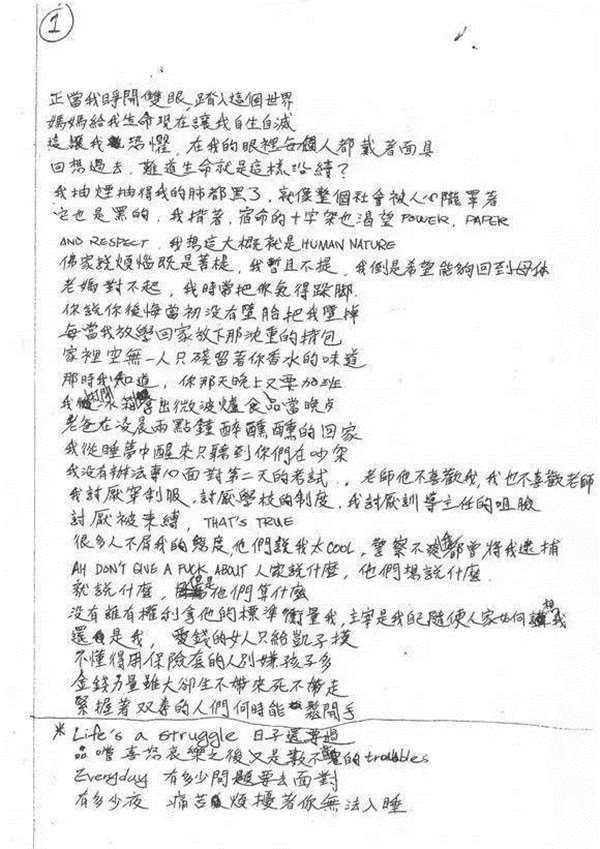 1
正當我睜開雙眼,踏入這個世界
媽媽給我生命現在讓我自生自滅
這讓我恐懼,在我的眼裡每個人都戴著面具
回想過去,難道生命就是這樣沿續?
我抽煙抽得我的肺都黑了,就像整個社會被人心籠罩著
它也是黑的,我揹著,宿命的十字架也渴望POWER, PAPER
AND RESPECT,我想這大概就是HUMAN NATURE
佛家說煩惱既是菩提,我暫且不提,我倒是希望能夠回到母体
老媽對不起,我時常把你氣得跺腳
你說你後悔當初没有墮胎把我墮掉
每當我放學回家放下那沈重的揹包
家裡空無一人只殘留著你香水的味道
那時我知道,你那天晚上又要加班
我打開冰箱拿出微波爐食品當晚点
老爸在凌晨兩點鐘醉醺醺的回家
我從睡夢中醒來只聽到你們在吵架
我没有辦法專心面對第二天的考試..老師他不喜歡我,我也不喜歡老師
我討厭穿制服,討厭學校的制度,我討厭訓導主任的咀臉
討厭被束縛,THAT'S TRUE
很多人不屑我的態度,他們說我太COOL,警察不爽都曾將我逮捕
AH DON'T GIVE A FUCK ABOUT 人家說什麼,他們想說什麼
就說什麼,但是他們算什麼
没有誰有權利拿他的標準衡量我,主宰是我自己隨便人家如何想我
還是我,愛錢的女人只給凱子摸
不懂得用保險套的人別嫌孩子多
金錢力量雖大卻生不帶來死不帶走
緊握著双拳的人們何時能鬆開手
* Life's a struggle 日子還要過
品嚐喜怒哀樂之後又是數不盡的troubles
Everyday 有多少問題要去面對
有多少夜 痛苦煩擾著你無法入睡